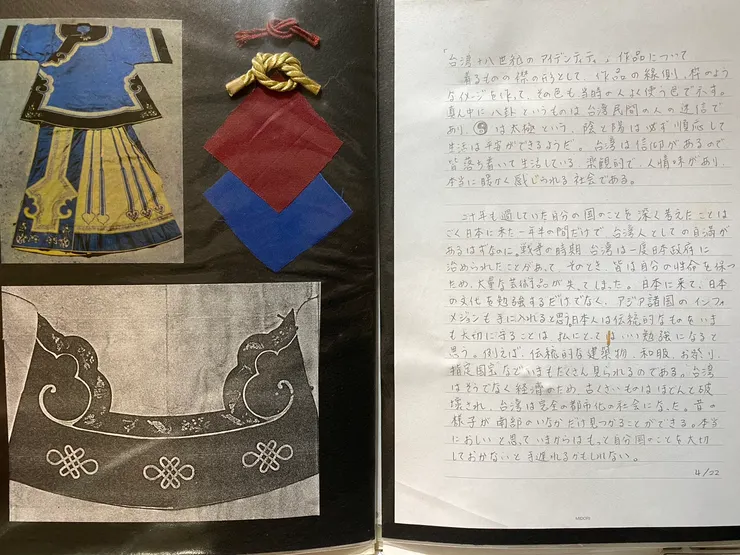 「台湾＋八色紙のアイデンティティ」作品について
着るものの襟の形として、作品の縁側、枠のよう
なイメージを作って、その色も当時の人よく使う色で示す。
真ん中に八卦というものは台湾民間の人の迷信で
あり、は太極という、陰と陽は必ず順応して
生活は平安ができるようだ。台湾は信仰があるので
皆落ち着いて生活している、楽観的で、人情味があり、
本当に暖かく感じられる社会である。
二十年も過していた自分の国のことを深く考えたことは
ごく日本に来た一年半の間だけで、台湾人としての自満が
あるはずなのに。戦争の時期、台湾は一度日本政府に
治められたことがあって、そのとき、皆は自分の性命を保つ
ため、大量な芸術品が失てしまった。日本に来て、日本
の文化を勉強するだけでなく、アジア諸国のインフォ
メションも手に入れると思う。日本人は伝統的なものをいま
も大切に守ることは、私にとってはいい勉強になると
思う。例えば、伝統的な建築物、和服、お祭り、
指定国宝などいまもたくさん見られるのである。台湾
はそうでなく経済のため、古くさいものはほとんど破
壊され、台湾は完全の都市化の社会になった。昔の
様子が南部のいなかだけ見つかることができる。本当
におしいと思って、いまからはもっと自分国のことを大切
しておかないと手遅れるかもしれない。
4/22